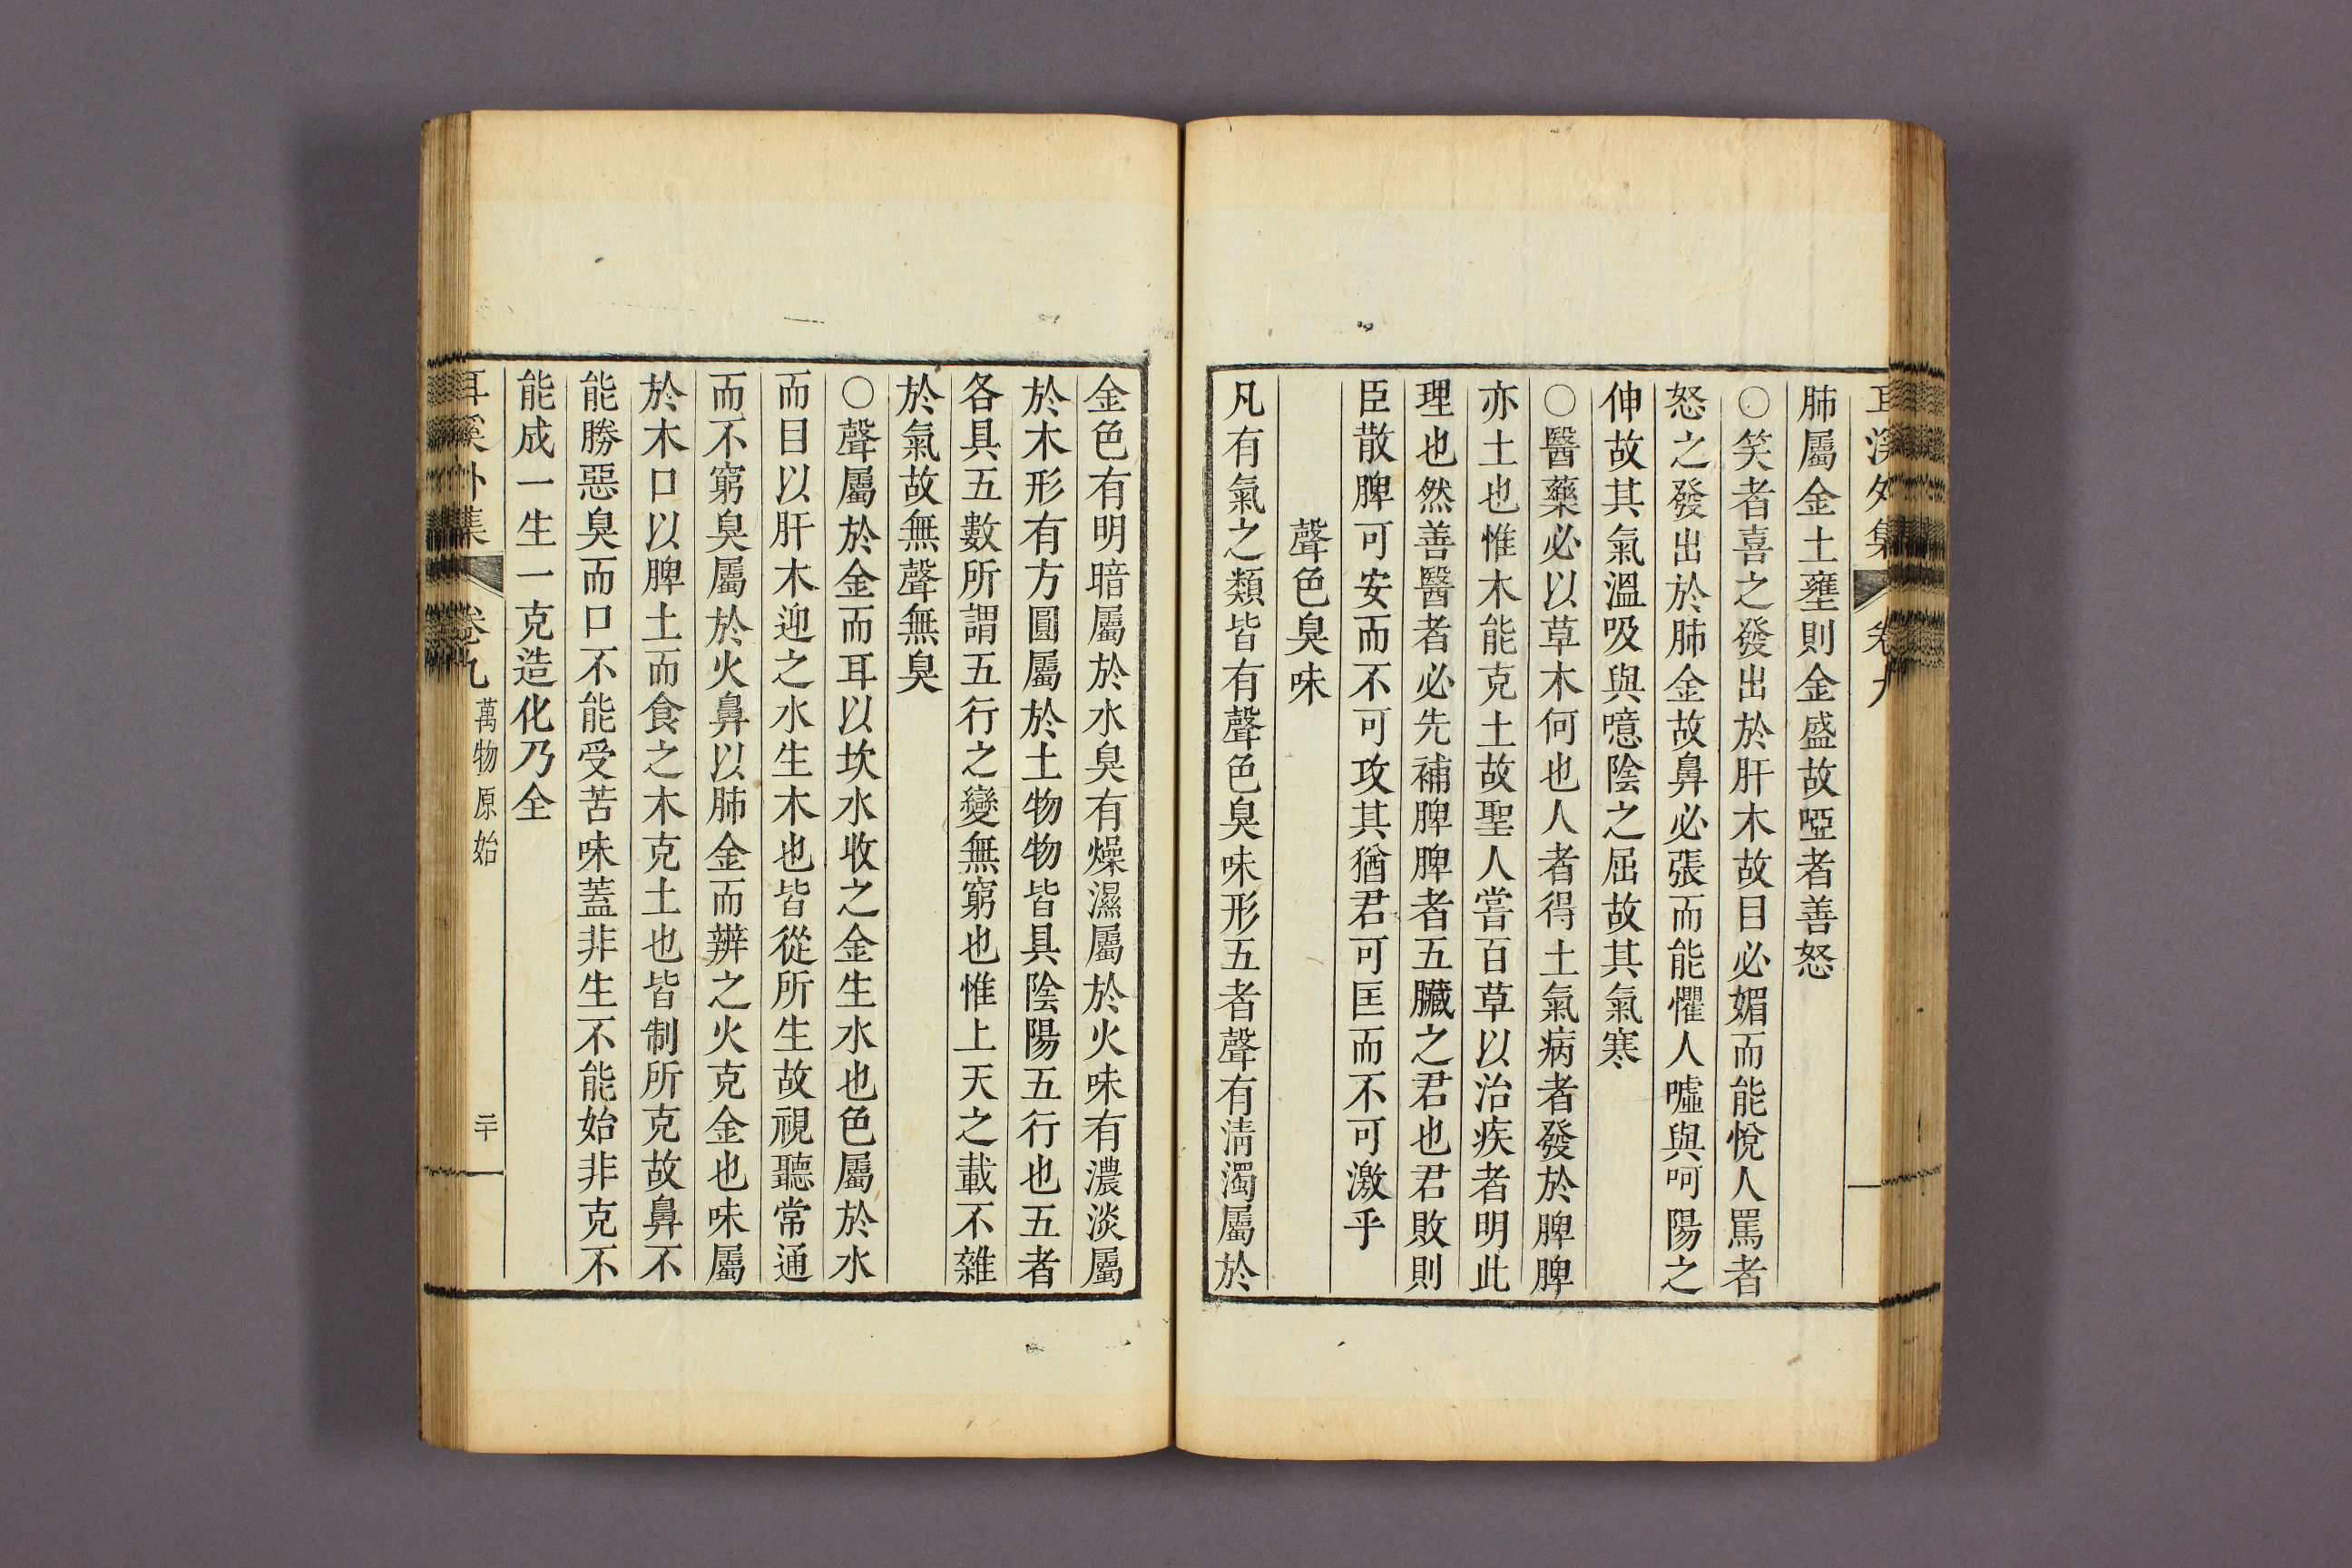 耳溪外集 卷九
肺屬金土壅則金盛故啞者善怒
○笑者喜之發出於肝木故目必媚而能悅人罵者
怒之發出於肺金故鼻必張而能懼人噓與呵陽之
伸故其氣溫吸與噫陰之屈故其氣寒
○醫藥必以草木何也人者得土氣病者發於脾脾
亦土也惟木能克土故聖人嘗百草以治疾者明此
理也然善醫者必先補脾脾者五臟之君也君敗則
臣散脾可安而不可攻其猶君可匡而不可激乎
聲色臭味
凡有氣之類皆有聲色臭味形五者聲有清濁屬於
金色有明暗屬於水臭有燥濕屬於火味有濃淡屬
於木形有方圓屬於土物物皆具陰陽五行也五者
各具五數所謂五行之變無窮也惟上天之載不雜
於氣故無聲無臭
○聲屬於金而耳以坎水收之金生水也色屬於水
而目以肝木迎之水生木也皆從所生故視聽常通
而不窮臭屬於火鼻以肺金而辨之火克金也味屬
於木口以脾土而食之木克土也皆制所克故鼻不
能勝惡臭而口不能受苦味蓋非生不能始非克不
能成一生一克造化乃全
耳溪外集 卷九 萬物原始 二十